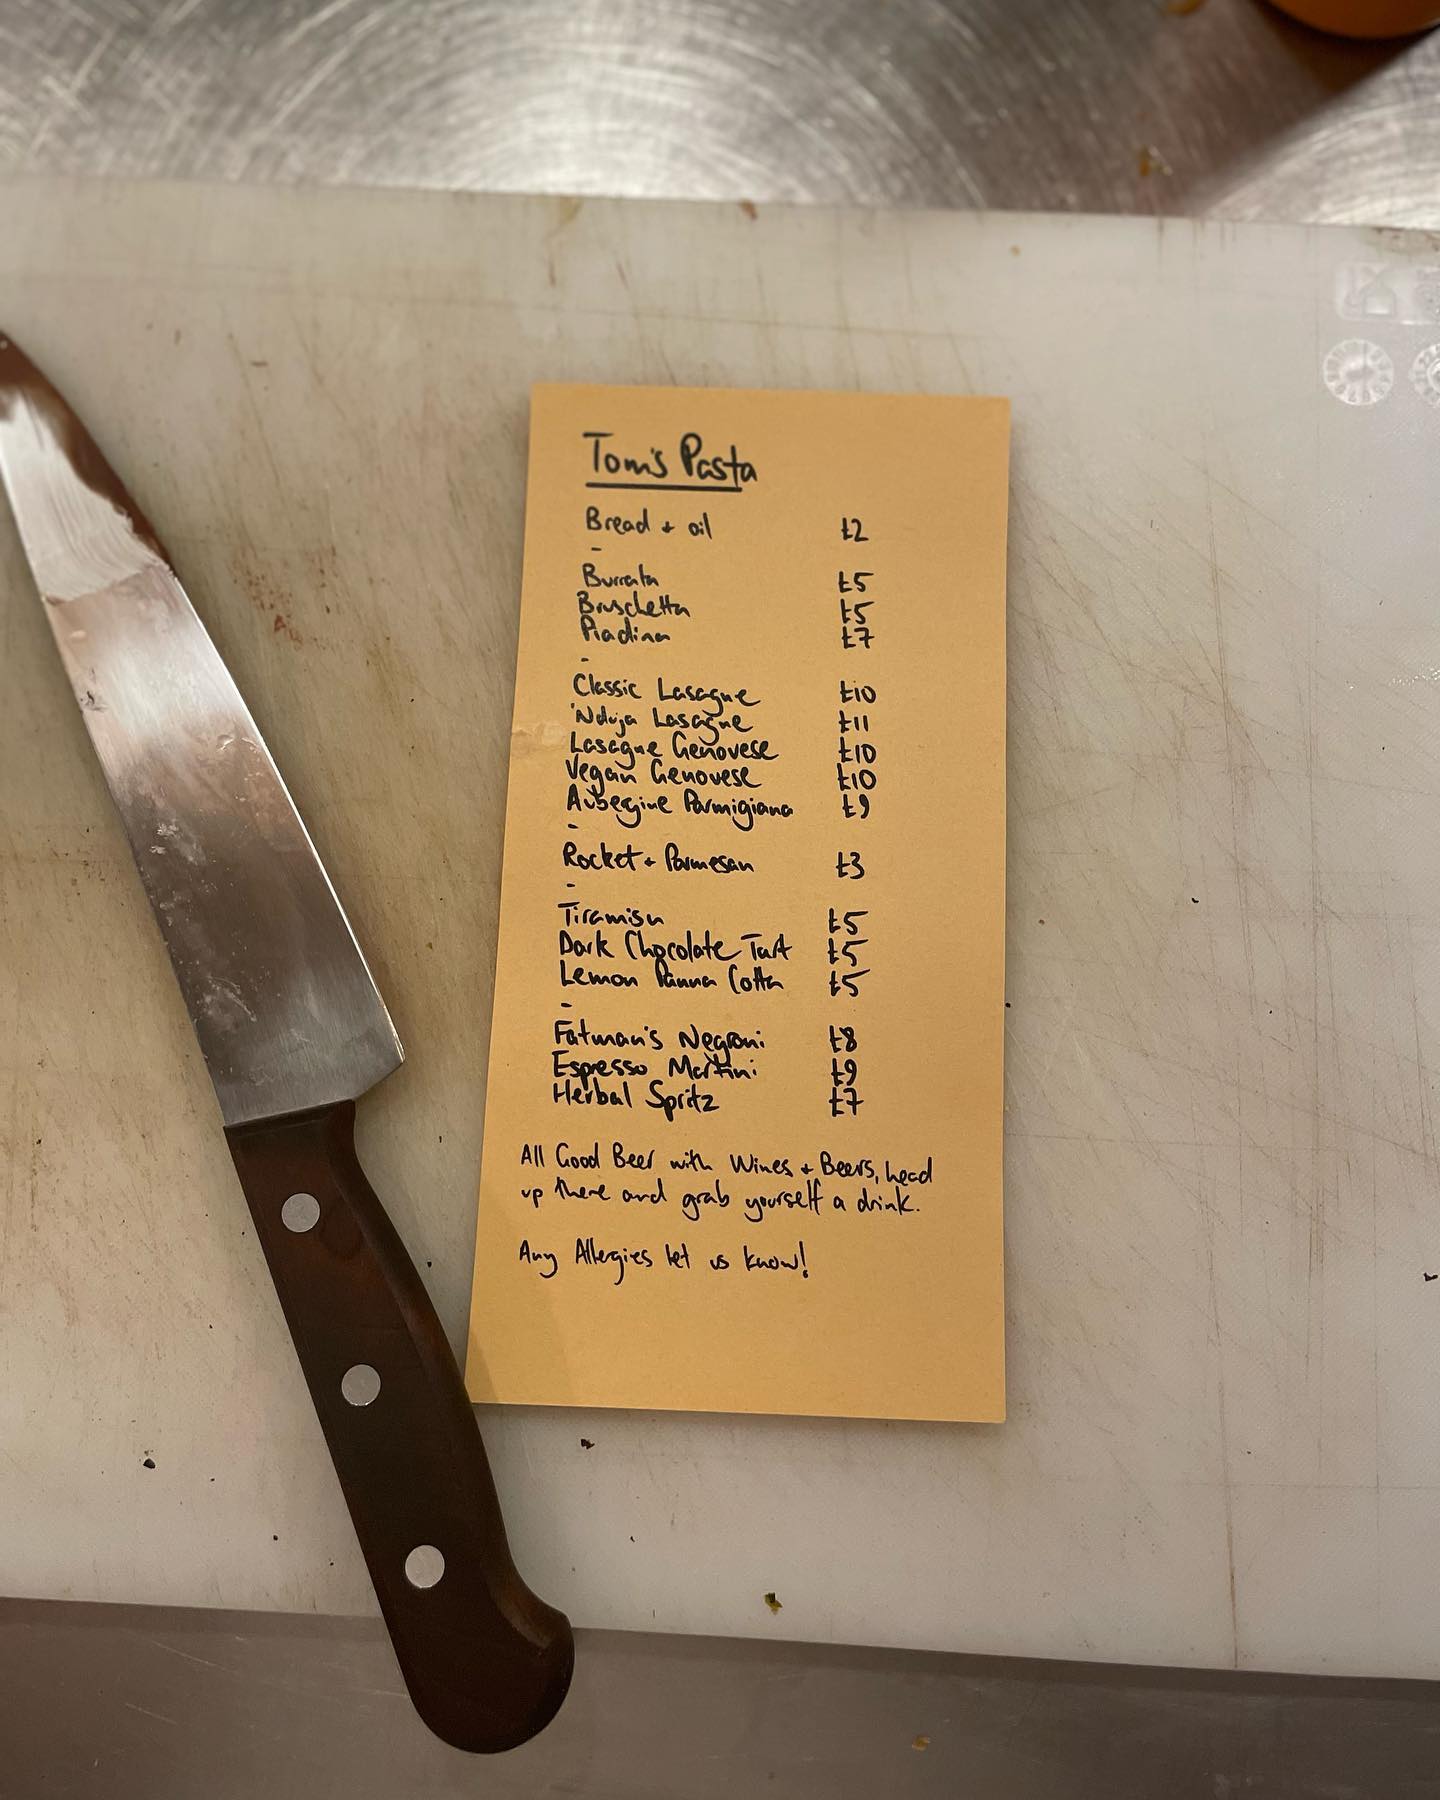 Tom's Pasta
Bread + oil £2
-
Burrata £5
Bruschetta £5
Piadina £7
-
Classic Lasagne £10
'Nduja Lasagne £11
Lasagne Genovese £10
Vegan Genovese £10
Aubergine Parmigiana £9
-
Rocket + Parmesan £3
-
Tiramisu £5
Dark Chocolate Tart £5
Lemon Panna Cotta £5
-
Fatman's Negroni £8
Espresso Martini £9
Herbal Spritz £7
All Good Beer with Wines + Beers, head
up there and grab yourself a drink.
Any Allergies let us know!